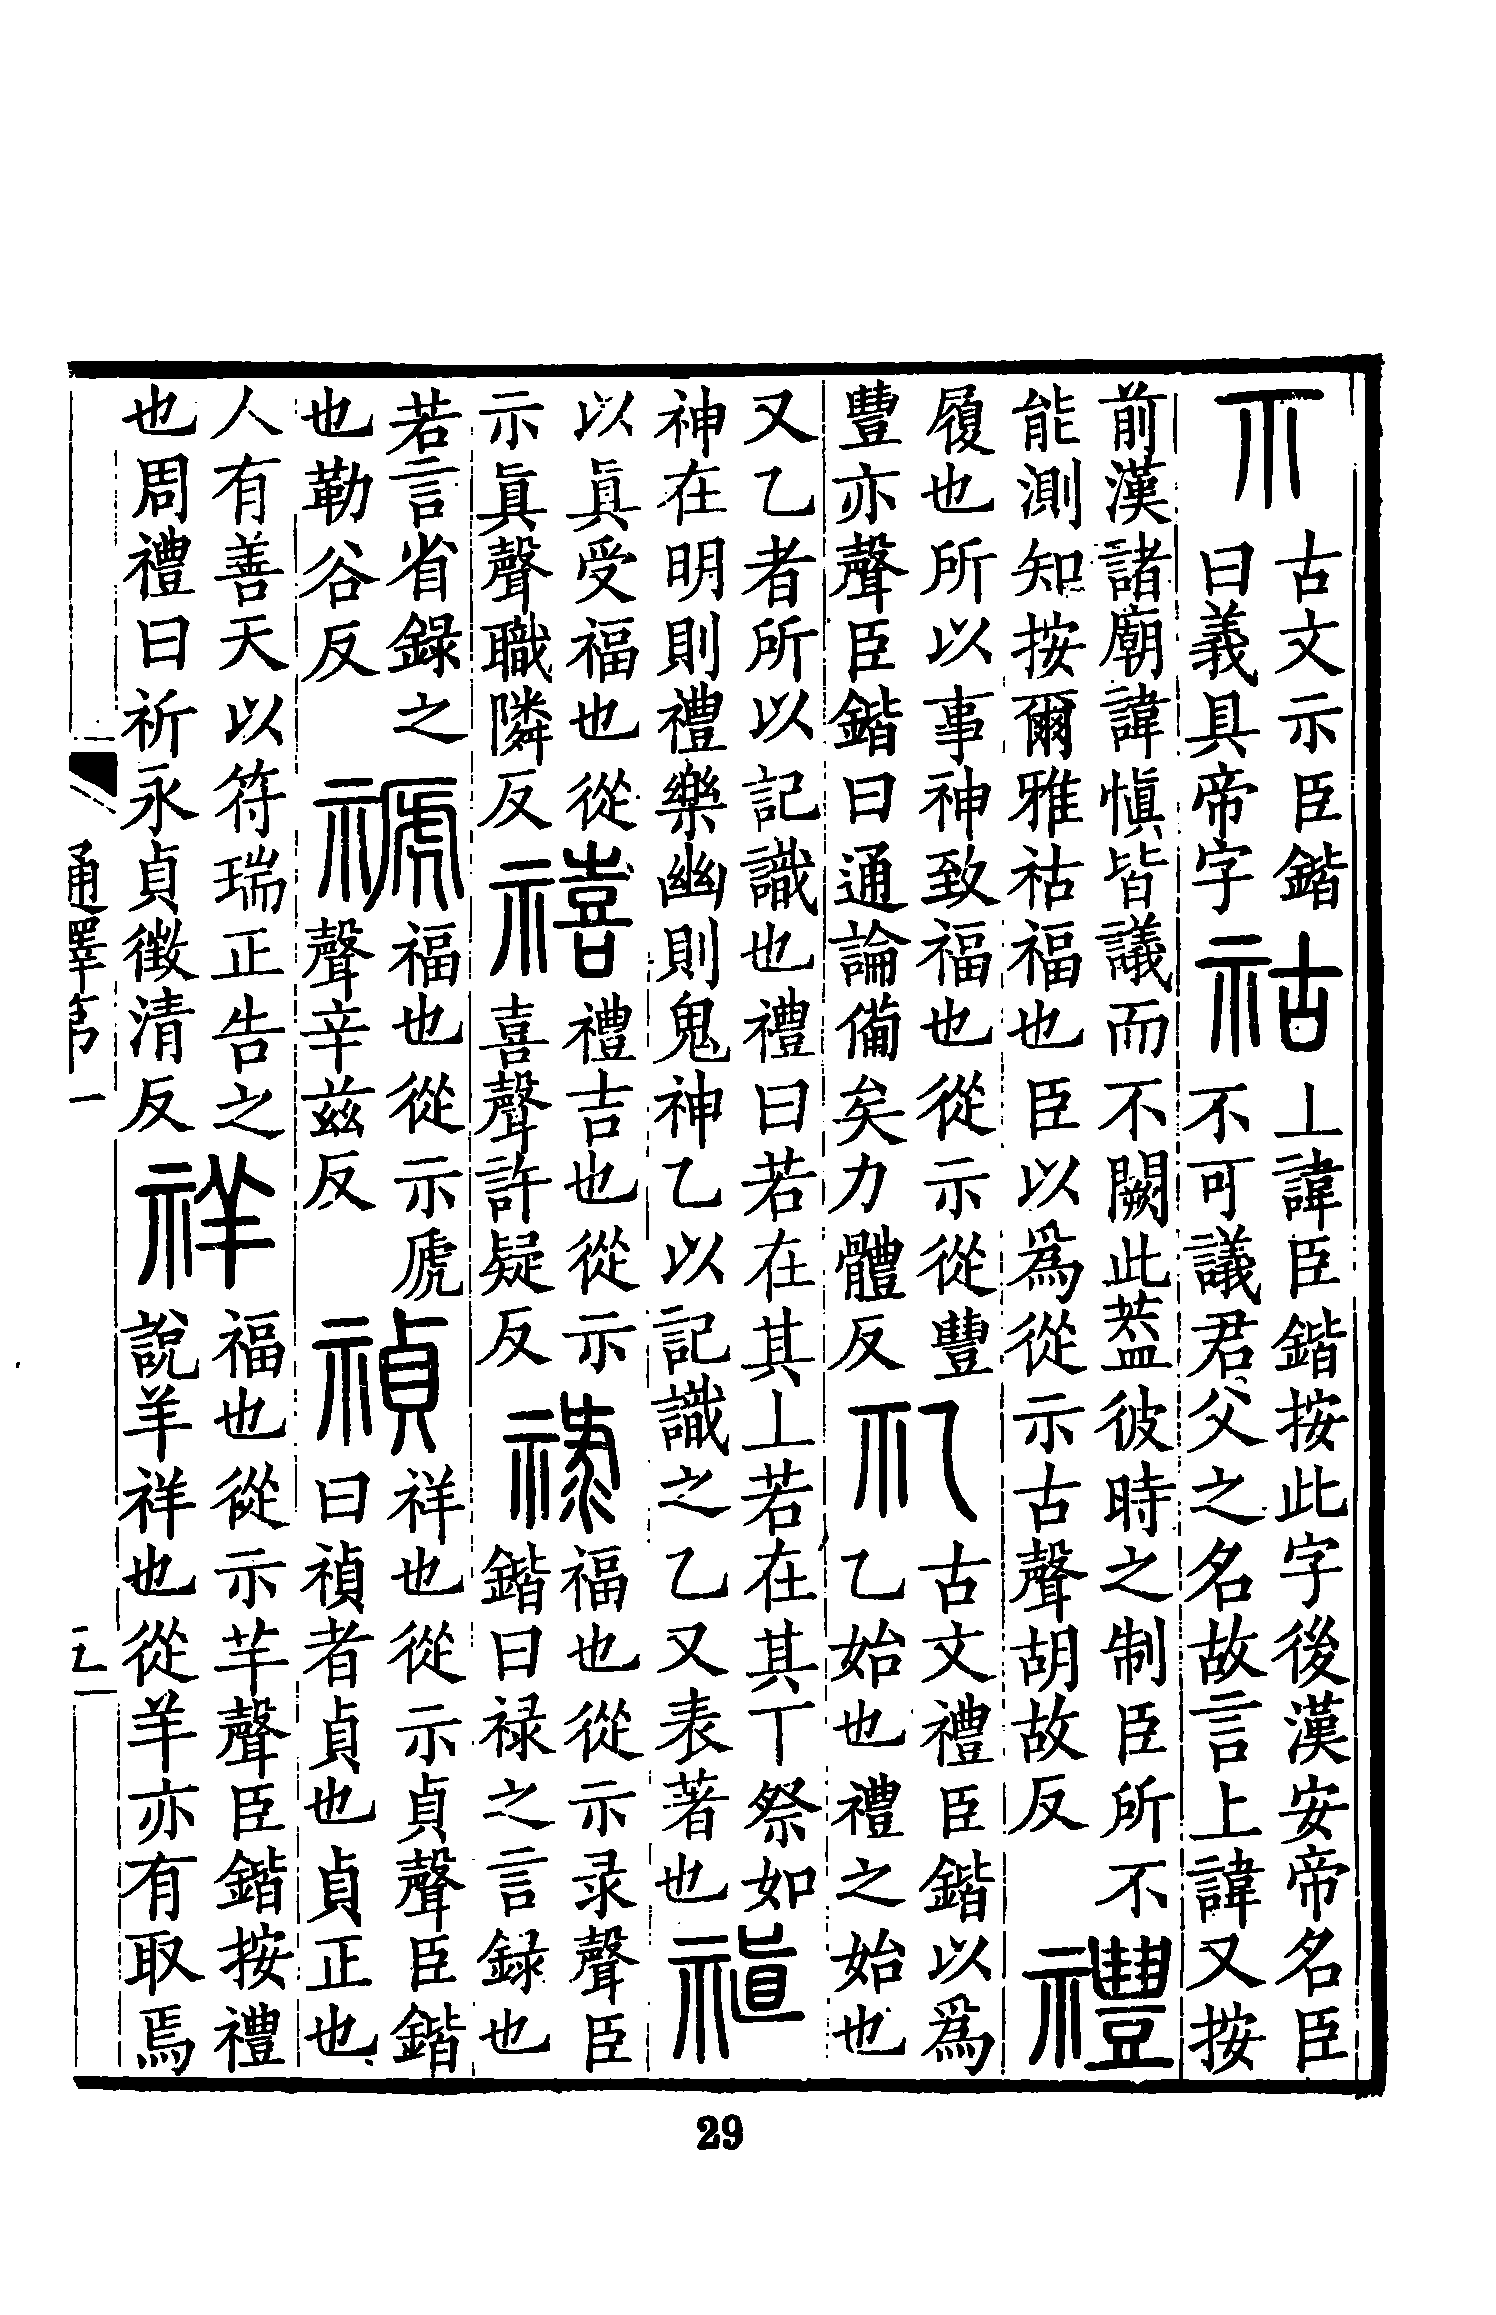 示
古文示臣鍇
曰義具帝字
祜
丄諱臣鍇按此字後漢安帝名臣
不可議君父之名故言上諱又按
前漢諸廟諱愼皆議而不闕此葢彼時之制臣所不
能測知按爾雅祜福也臣以爲從示古聲胡故反
禮
履也所以事神致福也從示從豐
豐亦聲臣鍇曰通論備矣力體反
礼
古文禮臣鍇以爲
乙始也禮之始也
又乙者所以記識也禮曰若在其丄若在其丅祭如
神在明則禮樂幽則鬼神乙以記識之乙又表著也
禛
以眞受福也從
示眞聲職隣反
禧
禮吉也從示
喜聲許疑反
祿
福也從示录聲臣
鍇曰禄之言録也
若言省録之
也勒谷反
禠
福也從示虒
聲辛兹反
禎
祥也從示貞聲臣鍇
曰禎者貞也貞正也
人有善天以符瑞正告之
也周禮曰祈永貞徵清反
祥
福也從示羊聲臣鍇按禮
說羊祥也從羊亦有取焉
通釋第一
29